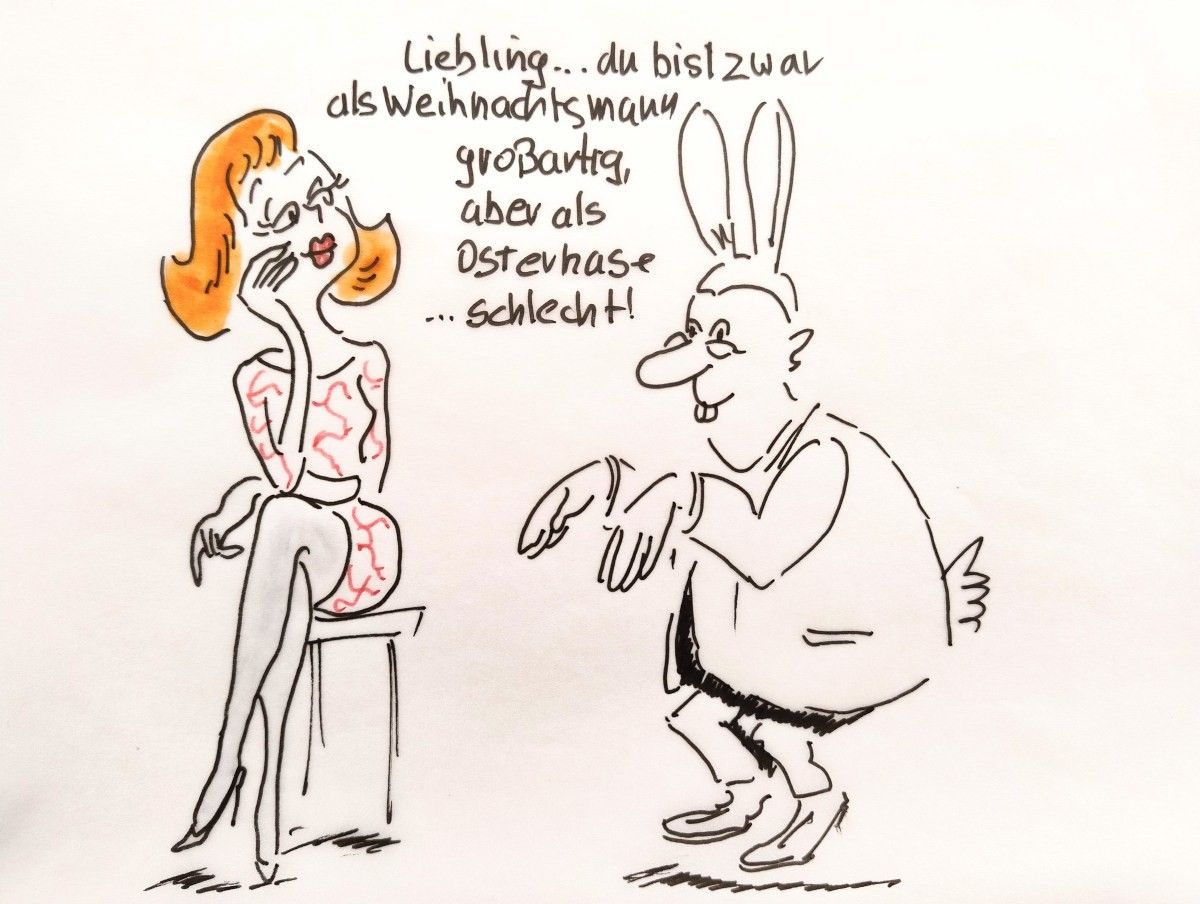 Liebling...du bist zwar
als Weihnachtsmann
großartig,
aber als
Osterhase
...schlecht!